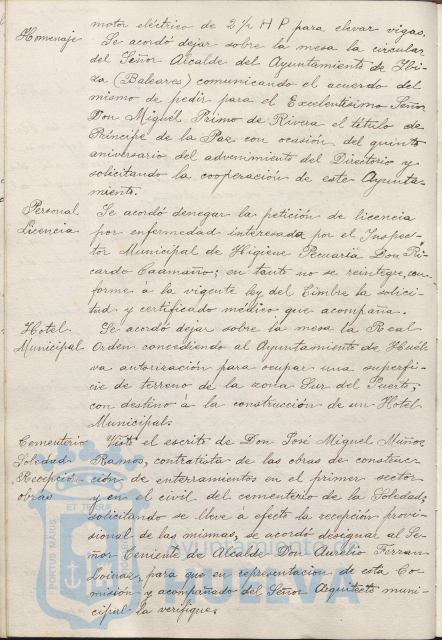 motor eléctrico de 2 1/2 H P para elevar vigas.
Homenaje Se acordó dejar sobre la mesa la circular
del Señor Alcalde del Ayuntamiento de Ibi-
za (Baleares) comunicando el acuerdo del
mismo de pedir para el Excelentísimo Señor
Don Miguel Primo de Rivera el título de
Príncipe de la Paz con ocasión del quinto
aniversario del advenimiento del Directorio y
solicitando la cooperación de este Ayunta-
miento.
Personal Se acordó denegar la petición de licencia
Licencia por enfermedad interesada por el Inspec-
tor Municipal de Higiene Pecuaria Don Ri-
cardo Caamaño; en tanto no se reintegre, con-
forme á la vigente ley del Timbre la solici-
tud y certificado médico que acompaña.
Hotel Se acordó dejar sobre la mesa la Real
Municipal Orden concediendo al Ayuntamiento de Huel-
va autorización para ocupar una superfi-
cie de terreno de la zona Sur del Puerto,
con destino á la construcción de un Hotel
Municipal.
Cementerio Visto el escrito de Don José Miguel Muñoz
Soledad Ramos, contratista de las obras de construc-
Recepción ción de enterramientos en el primer sector
obras y en el civil del cementerio de la Soledad;
solicitando se lleve á efecto la recepción provi-
sional de las mismas, se acordó designar al Se-
ñor Teniente de Alcalde Don Aurelio
para que en representación de esta Co-
misión y acompañado del Señor Arquitecto muni-
cipal la verifique.
PORTUS MARIS
ET TERRAE
HUELVA